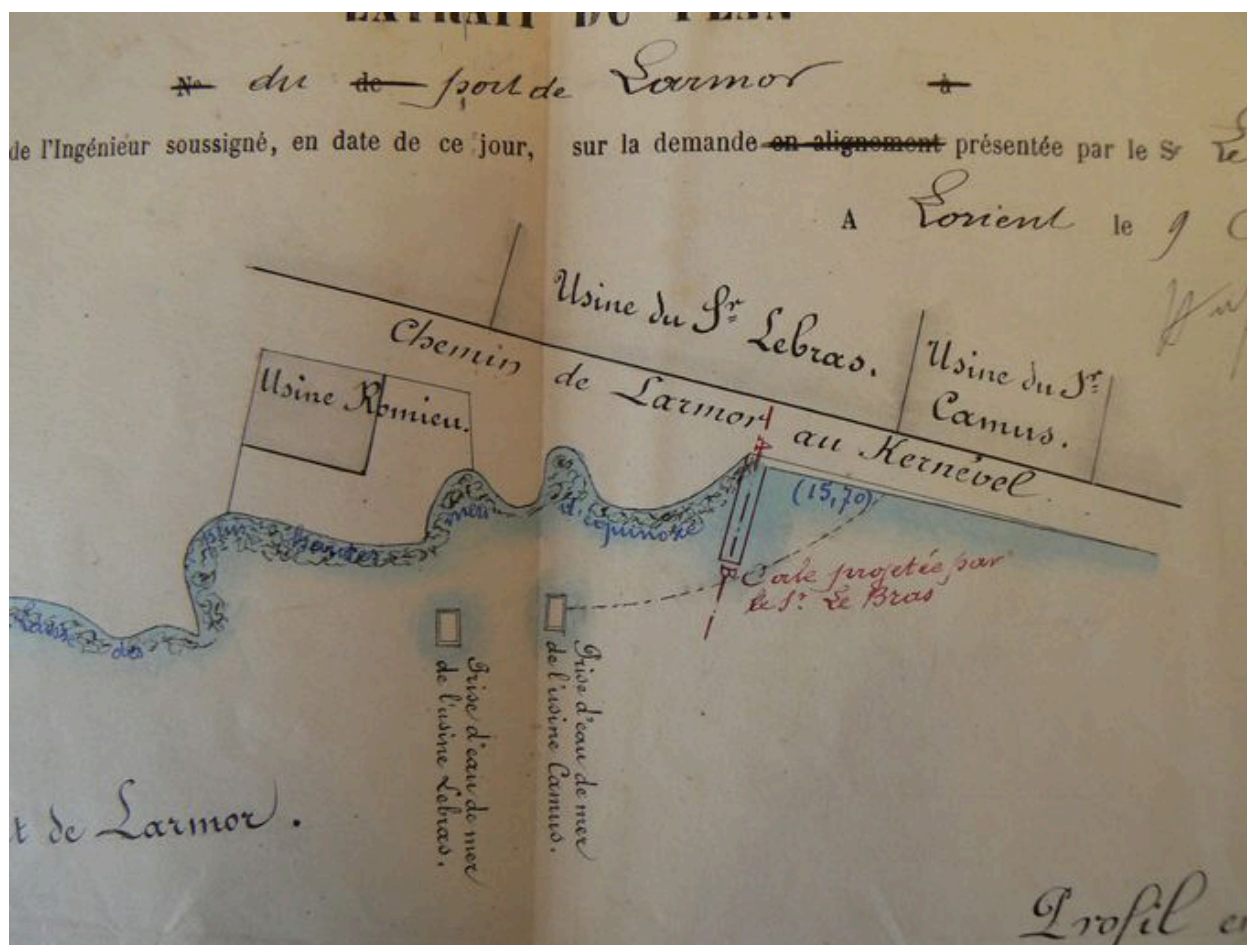 EXTRAIT DU PLAN
N° du de port de Larmor à
de l'Ingénieur soussigné, en date de ce jour, sur la demande en alignement présentée par le Sr
A Lorient le 9
Usine du Sr Lebras.
Usine du Sr
Camus.
Chemin de Larmor au Kernével
Usine Romieu.
(15,70)
Laisse des plus hautes mers d'équinoxe
Cale projetée par
le Sr Le Bras
Prise d'eau de mer
de l'usine Lebras.
Prise d'eau de mer
de l'usine Camus.
t de Larmor.
Profil en